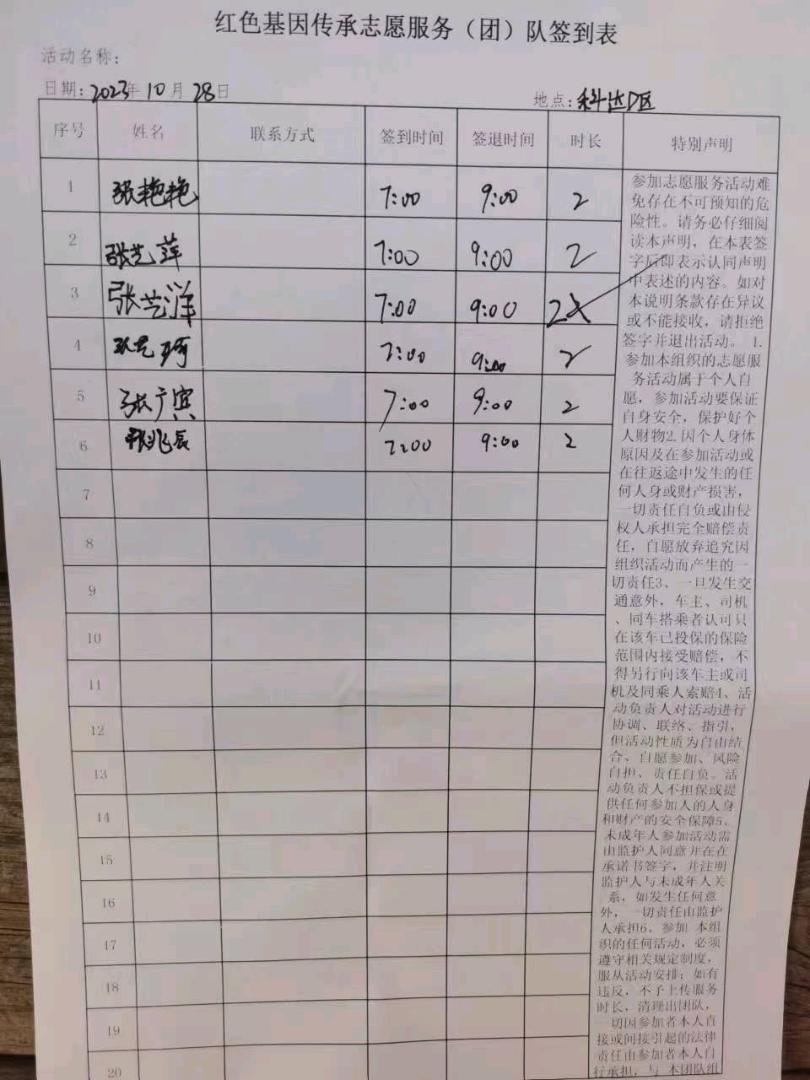 红色基因传承志愿服务（团）队签到表
活动名称：
日期：2023年10月28日 地点：科达厂区
序号 姓名 联系方式 签到时间 签退时间 时长 特别声明
1 张艳艳 7:00 9:00 2
2 张艺萍 7:00 9:00 2
3 张艺洋 7:00 9:00 2
4 张艺珂 7:00 9:00 2
5 张广宾 7:00 9:00 2
6 张兆辰 7:00 9:00 2
7
8
9
10
11
12
13
14
15
16
17
18
19
20
参加志愿服务活动难
免存在不可预知的危
险性。请务必仔细阅
读本声明，在本表签
字后即表示认同声明
中表述的内容。如对
本说明条款存在异议
或不能接收，请拒绝
签字并退出活动。 1.
参加本组织的志愿服
务活动属于个人自
愿，参加活动要保证
自身安全，保护好个
人财物2.因个人身体
原因及在参加活动或
在往返途中发生的任
何人身或财产损害，
一切责任自负或由侵
权人承担完全赔偿责
任，自愿放弃追究因
组织活动而产生的一
切责任3、一旦发生交
通意外，车主、司机
、同车搭乘者认可只
在该车已投保的保险
范围内接受赔偿，不
得另行向该车主或司
机及同乘人索赔4、活
动负责人对活动进行
协调、联络、指引，
但活动性质为自由结
合、自愿参加、风险
自担、责任自负。活
动负责人不担保或提
供任何参加人的人身
和财产的安全保障5、
未成年人参加活动需
由监护人同意并在在
承诺书签字，并注明
监护人与未成年人关
系，如发生任何意
外，一切责任由监护
人承担6、参加 本组
织的任何活动，必须
遵守相关规定制度，
服从活动安排；如有
违反，不予上传服务
时长，清理出团队，
一切因参加者本人直
接或间接引起的法律
责任由参加者本人自
行承担，与 本团队组